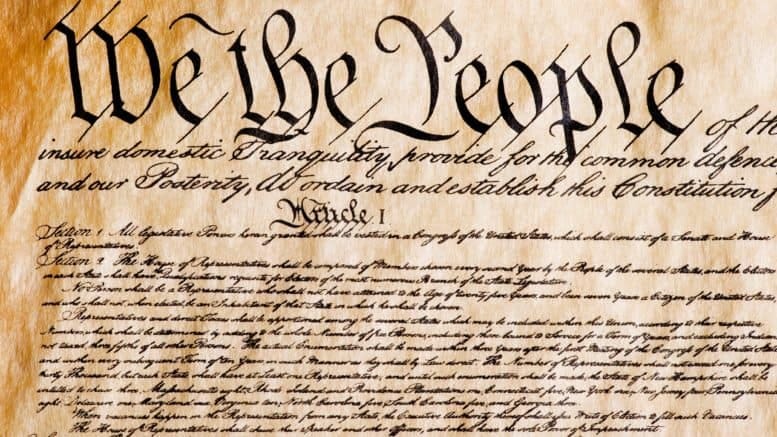 We the People of
insure domestic Tranquility, provide for the common defence
and our Posterity, do ordain and establish this Constitution f
Article I
Section 1 All legislative Powers herein granted shall be vested in a Congress of the United States, which shall consist of a Senate and House
of Representatives.
Section 2 The House of Representatives shall be composed of Members chosen every second Year by the People of the several States, and the Electors
each State shall have Qualifications requisite for Electors of the most numerous Branch of the State Legislature.
No Person shall be a Representative who shall not have attained to the Age of twenty five Years, and been seven Years a Citizen of the United States
and who shall not, when elected, be an Inhabitant of that State in which he shall be chosen.
Representatives and direct Taxes shall be apportioned among the several States which may be included within this Union, according to their respective
Numbers, which shall be determined by adding to the whole Number of free Persons, including those bound to Service for a Term of Years, and excluding Indians
not taxed, three fifths of all other Persons. The actual Enumeration shall be made within three Years after the first Meeting of the Congress of the United States
and within every subsequent Term of ten Years, in such Manner as they shall by Law direct. The Number of Representatives shall not exceed one for every
thirty Thousand, but each State shall have at Least one Representative; and until such enumeration shall be made, the State of New Hampshire shall be
entitled to chuse three, Massachusetts eight, Rhode Island and Providence Plantations one, Connecticut five, New York six, New Jersey four, Pennsylvania
eight, Delaware one, Maryland six, Virginia ten, North Carolina five, South Carolina five, and Georgia three.
When vacancies happen in the Representation from any State, the Executive Authority thereof shall issue Writs of Election to fill such Vacancies.
The House of Representatives shall chuse their Speaker and other Officers; and shall have the sole Power of Impeachment.